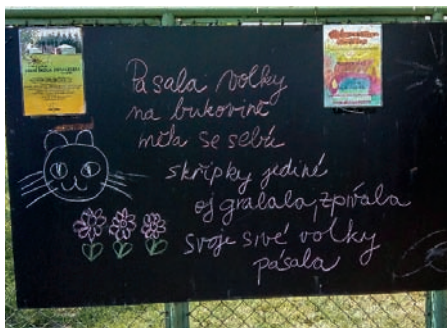 Pásala volky
na bukovině
měla se sebú
skřipky jediné
oj gralala, zpívala
svoje sivé volky
pásala